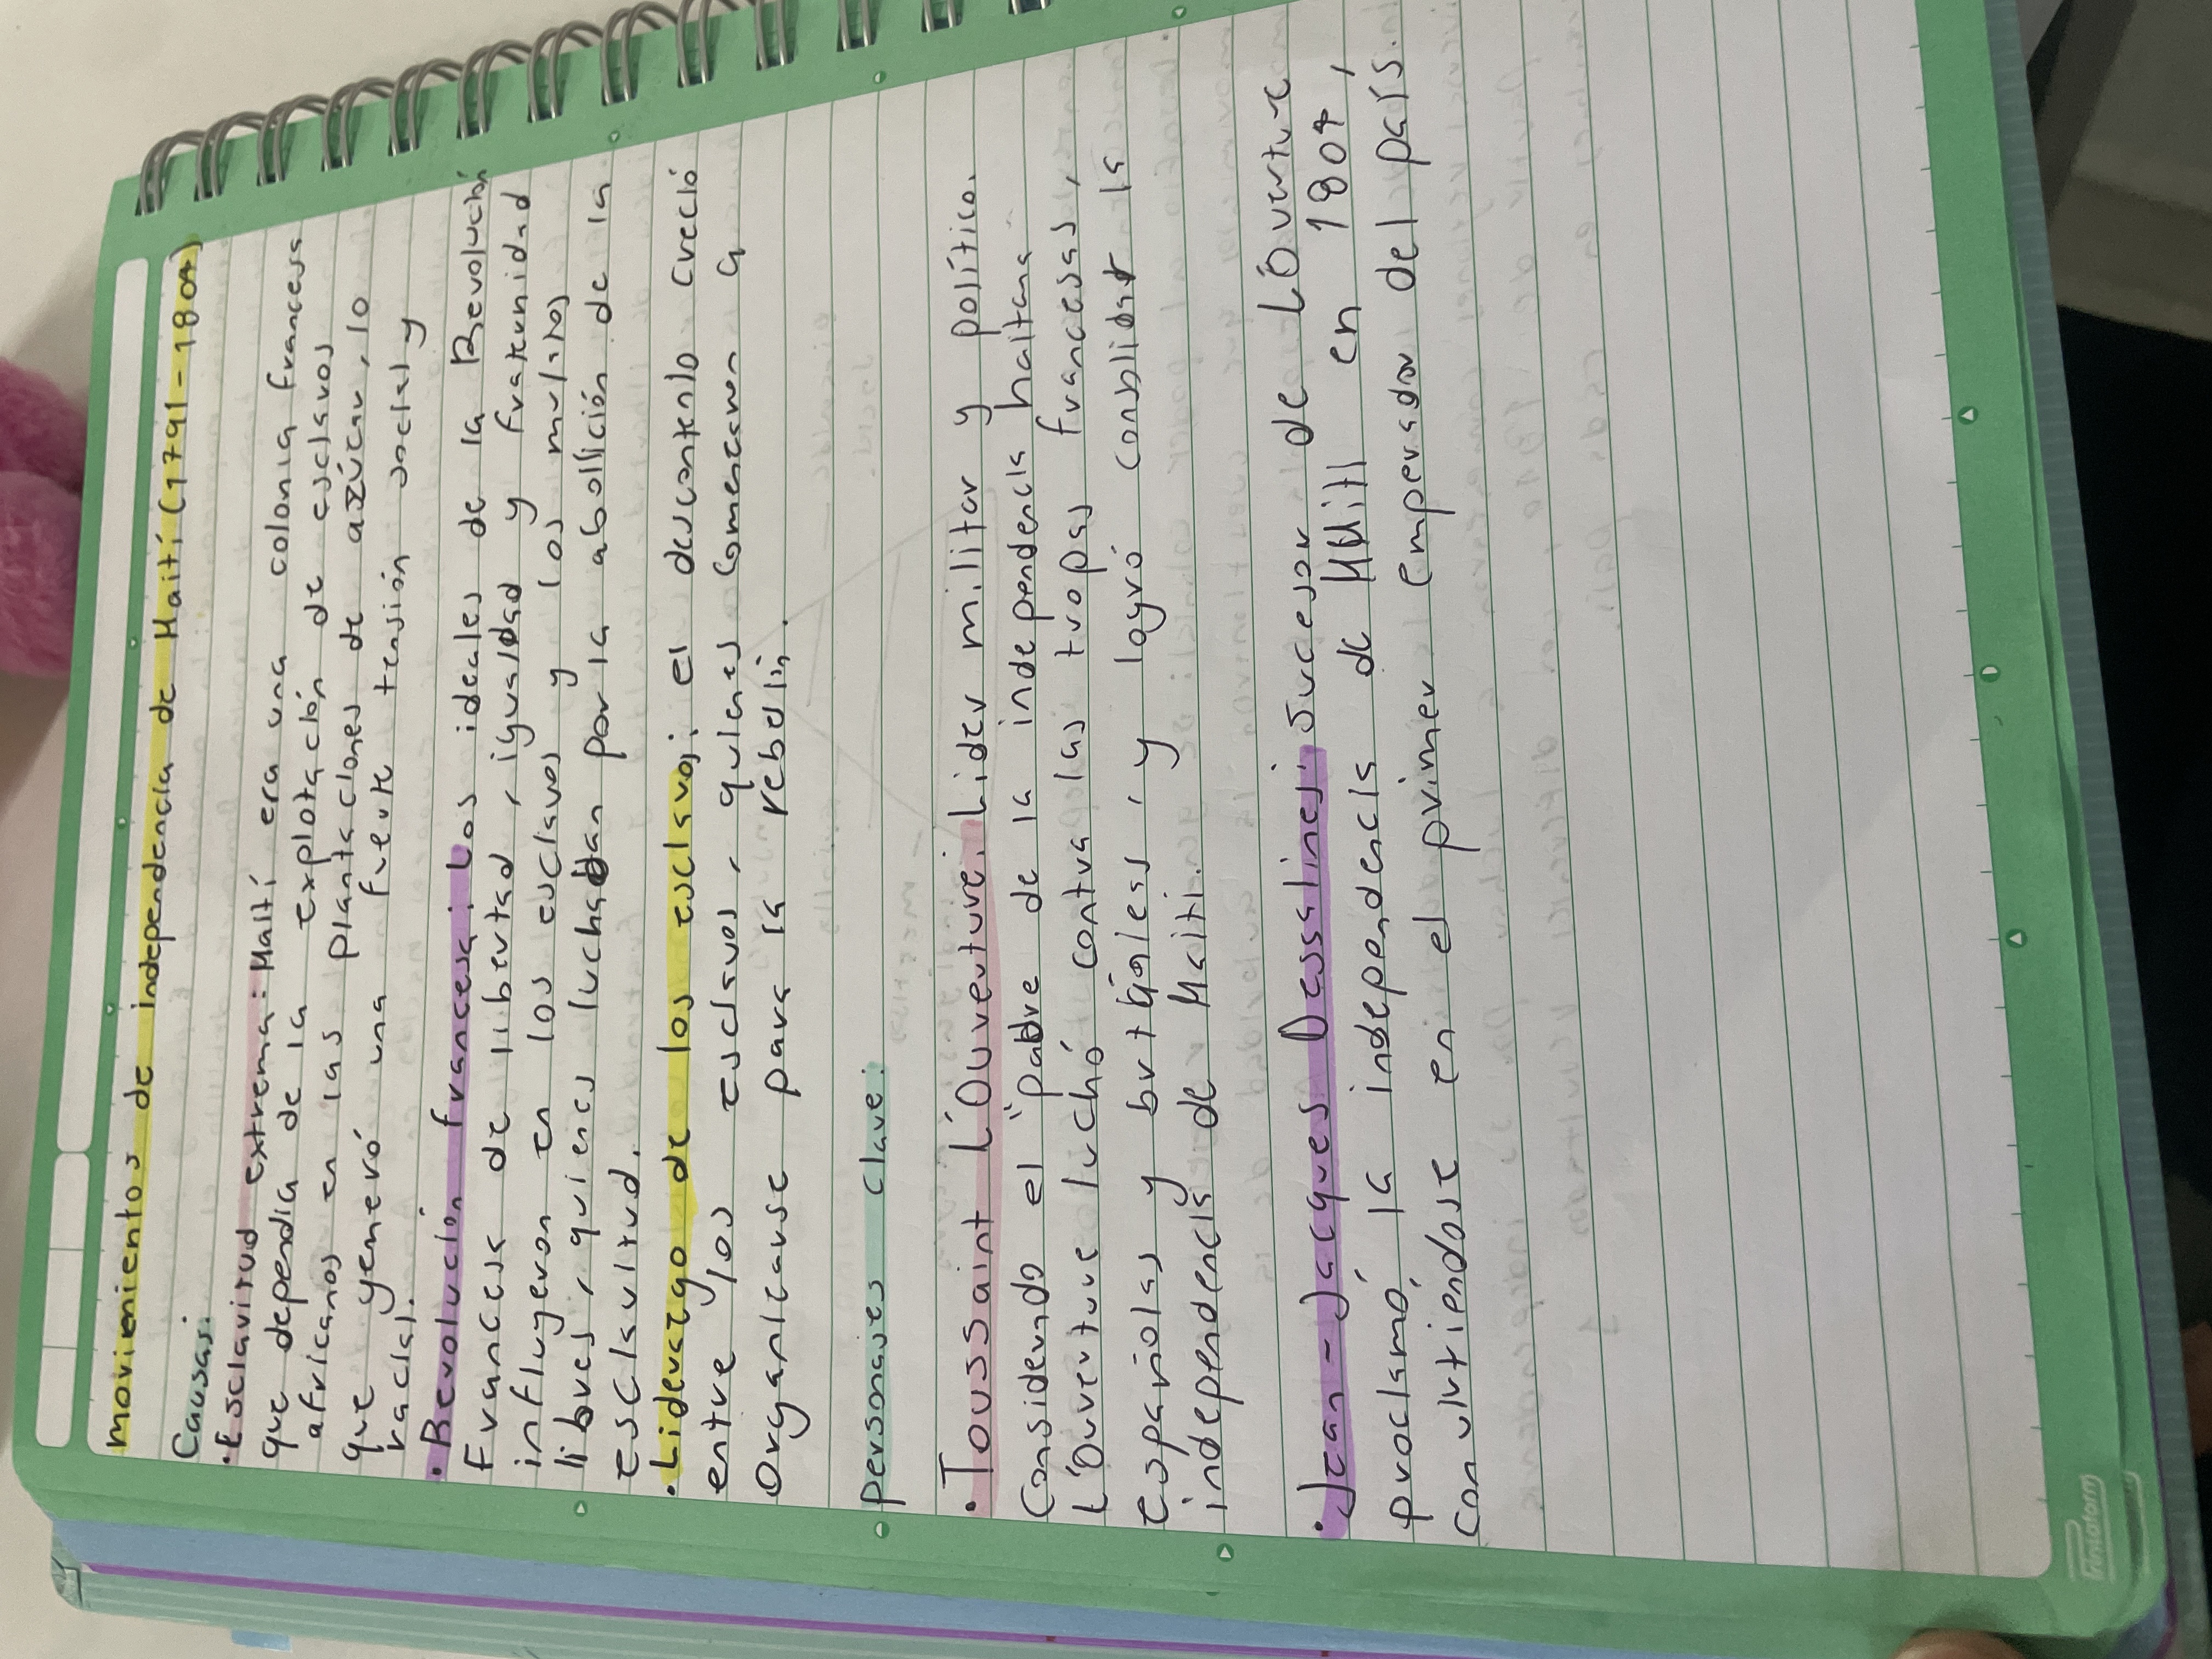 movimientos de independencia de Haití (1791-1804)
Causas:
• Esclavitud extrema: Haití era una colonia francesa
que dependia de la explotación de esclavos
africanos en las plantaciones de azúcar, lo
que generó una fuerte tensión social y
racial.
• Revolución francesa: Los ideales de la Revolución
Francesa de libertad, igualdad y fraternidad
influyeron en los esclavos y los mulatos
libres, quienes luchaban por la abolición de la
esclavitud.
• Liderazgo de los esclavos: el descontento creció
entre los esclavos, quienes comenzaron a
organizarse para la rebelión.
personajes clave:
• Toussaint L'Ouverture: Lider militar y político.
Considerado el "padre de la independencia haitiana
L'Ouverture luchó contra las tropas francesas,
españolas y británicas, y logró consolidar la
independencia de Haiti.
• Jean-Jacques Dessalines: Sucesor de L'Ouverture
proclamó la independencia de Haití en 1804,
convirtiendose en el primer emperador del país.
Printaform